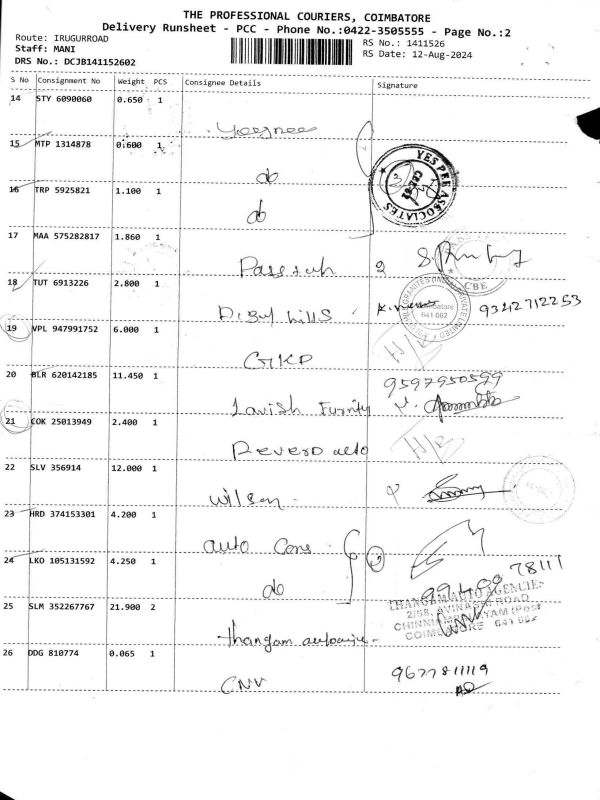 THE PROFESSIONAL COURIERS, COIMBATORE
Delivery Runsheet - PCC - Phone No.:0422-3505555 - Page No.:2
Route: IRUGURROAD
RS No.: 1411526
Staff: MANI
RS Date: 12-Aug-2024
DRS No.: DCJB141152602
S No Consignment No Weight PCS Consignee Details Signature
14 STY 6090060 0.650 1
15 MTP 1314878 0.600 1
do
YES PEE ASSOCIATES
CBE-62
16 TRP 5925821 1.100 1
do
17 MAA 575282817 1.860 1
CBE
18 TUT 6913226 2.800 1
hills
641 062
9342712253
19 VPL 947991752 6.000 1
GKD
20 BLR 620142185 11.450 1
9597950599
Lavish Furnity
21 COK 25013949 2.400 1
Revero auto
22 SLV 356914 12.000 1
Wilson
23 HRD 374153301 4.200 1
auto Cons
24 LKO 105131592 4.250 1
do
99400 78111
25 SLM 352267767 21.900 2
THANGAM AUTO AGENCIES
2/58, AVINASHI ROAD,
COIMBATORE 641 062
thangam
26 DDG 810774 0.065 1
9677811119
CNV